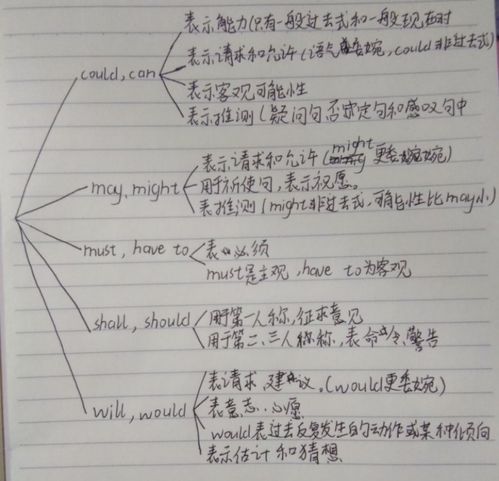 could, can
表示能力(只有一般过去式和一般现在时
表示请求和允许(语气委婉, could非过去式)
表示客观可能性
表示推测(疑问句否定句和感叹句中
may, might
表示请求和允许(might更委婉)
用于祈使句,表示祝愿。
表推测(might非过去式,可能性比may小)
must, have to
表必须
must是主观, have to为客观
shall, should
用于第一人称,征求意见
用于第二、三人称称,表命令、警告
will, would
表请求、建议。(would更委婉)
表意志、心愿
would表过去反复发生的动作或某种倾向
表示估计和猜想